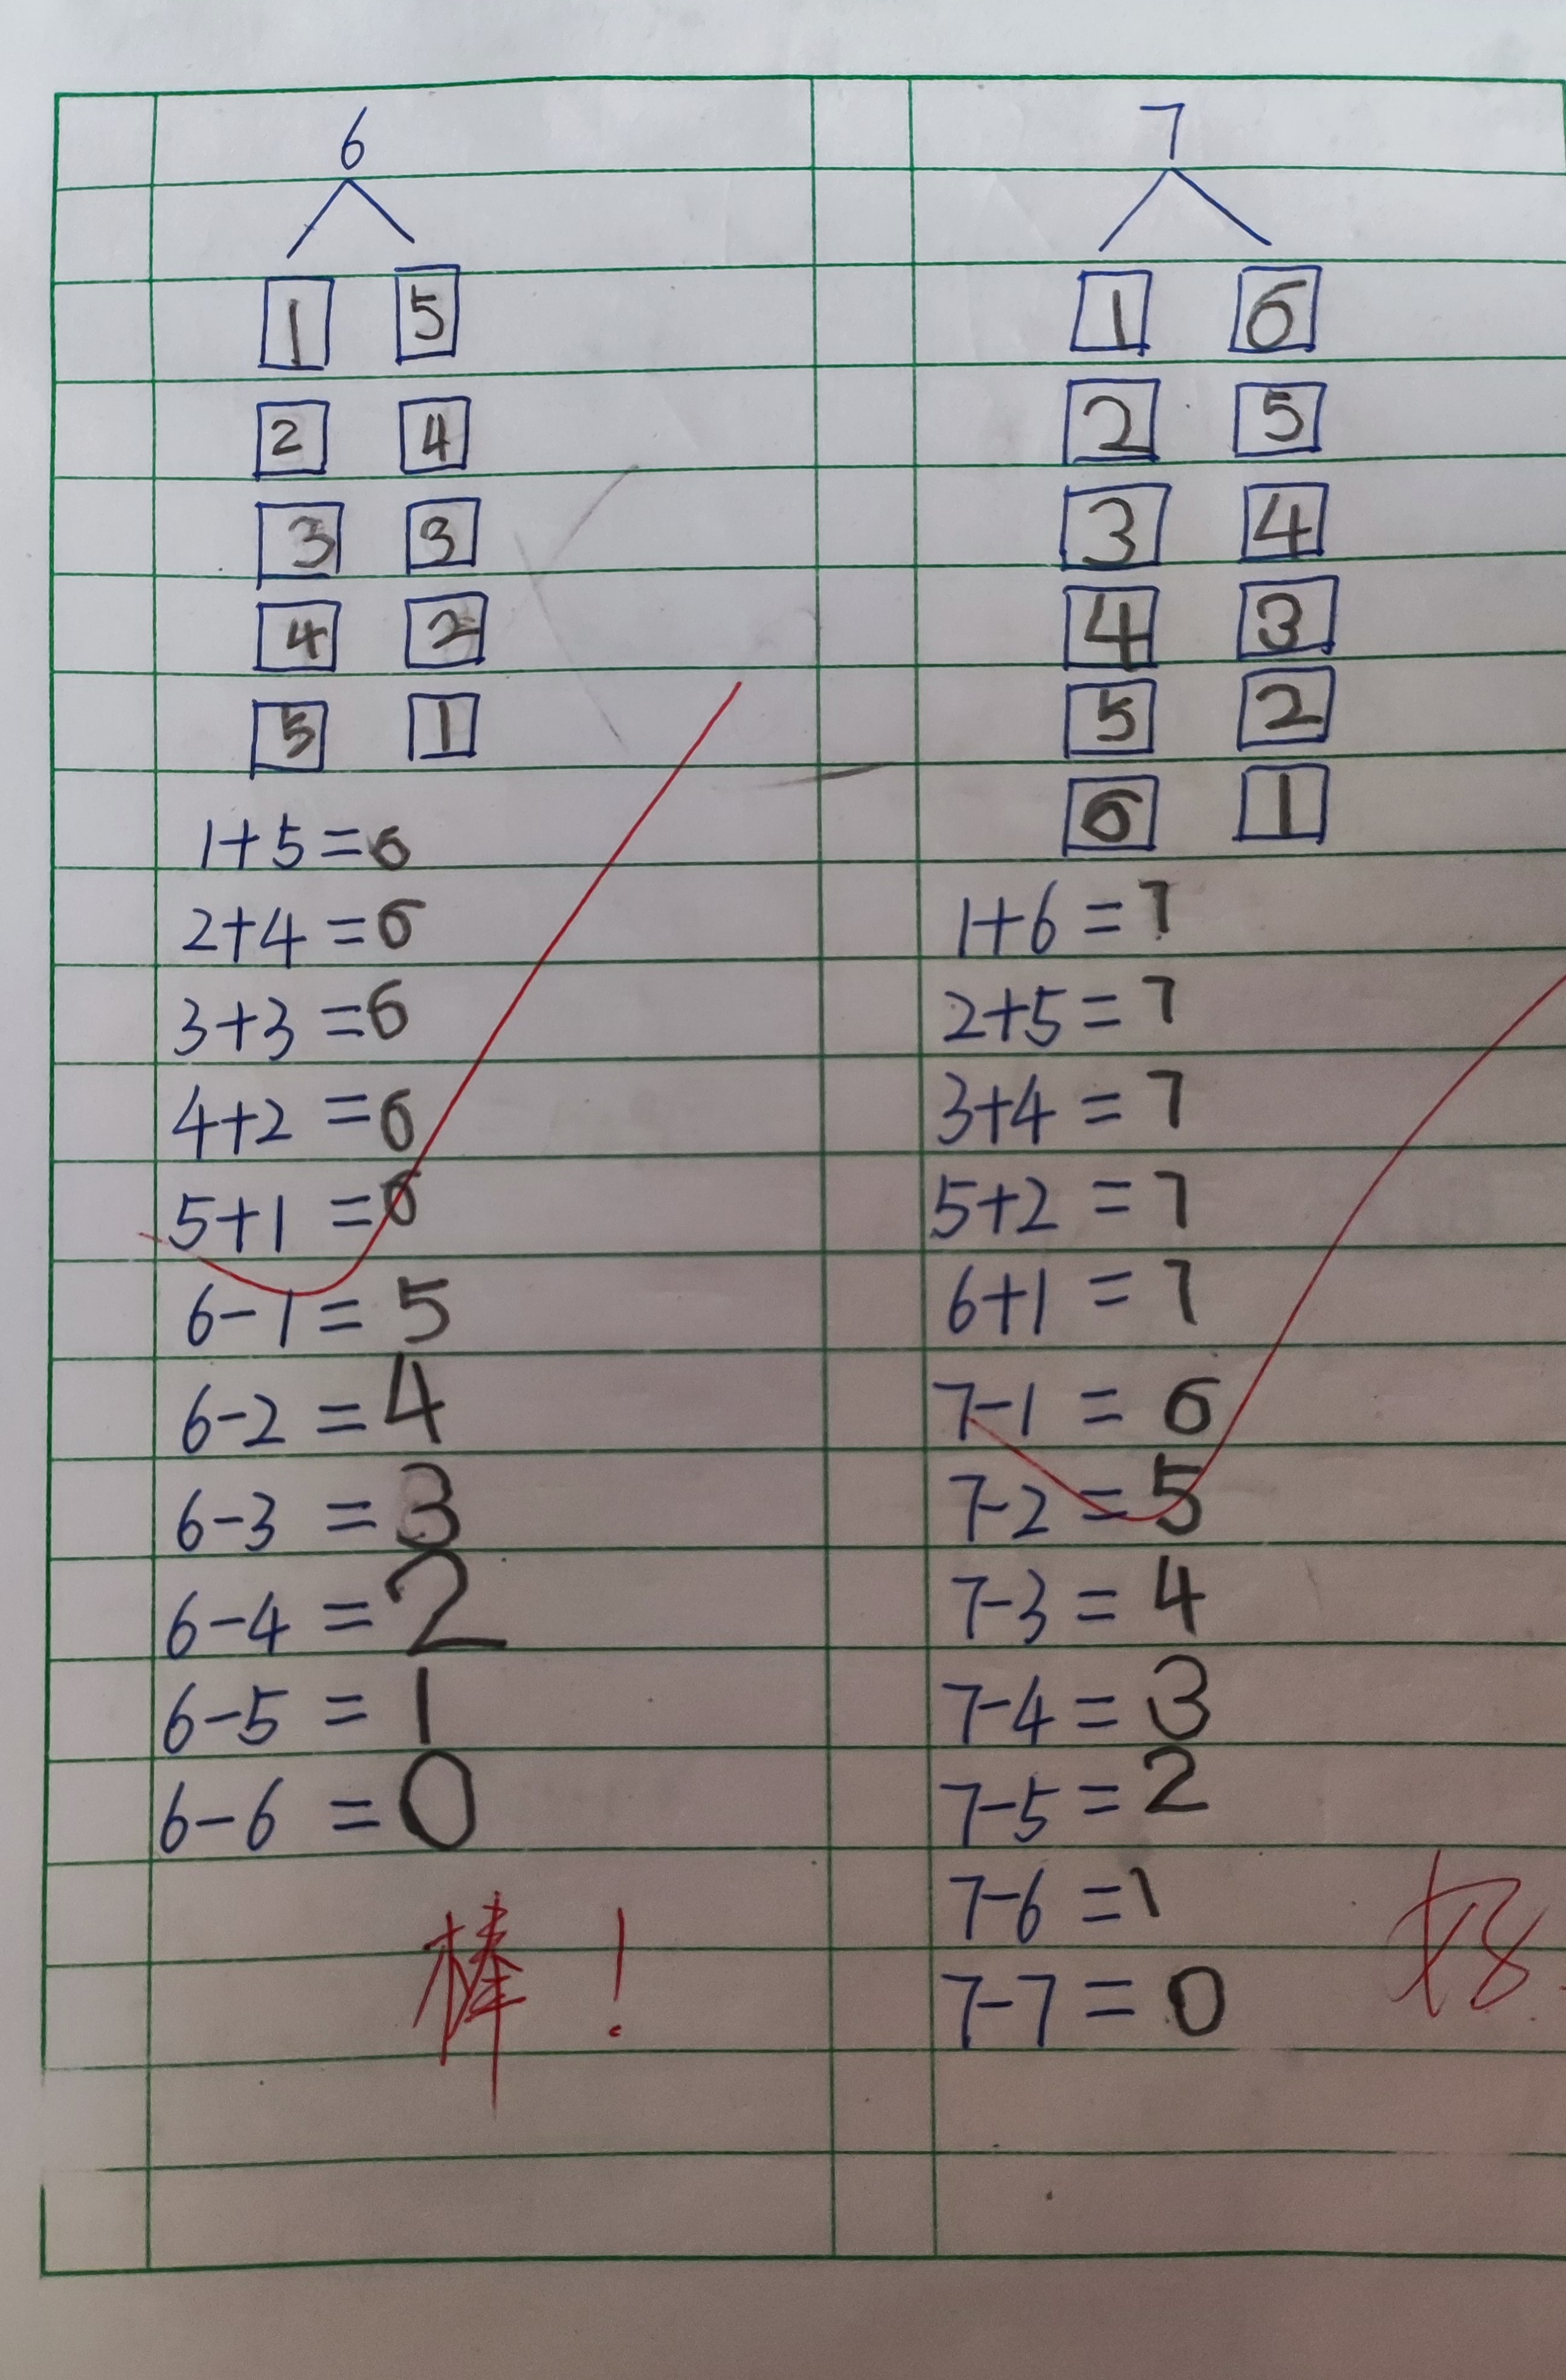 6
1 5
2 4
3 3
4 2
5 1
1+5=6
2+4=6
3+3=6
4+2=6
5+1=6
6-1=5
6-2=4
6-3=3
6-4=2
6-5=1
6-6=0
棒！
7
1 6
2 5
3 4
4 3
5 2
6 1
1+6=7
2+5=7
3+4=7
5+2=7
6+1=7
7-1=6
7-2=5
7-3=4
7-4=3
7-5=2
7-6=1
7-7=0
好